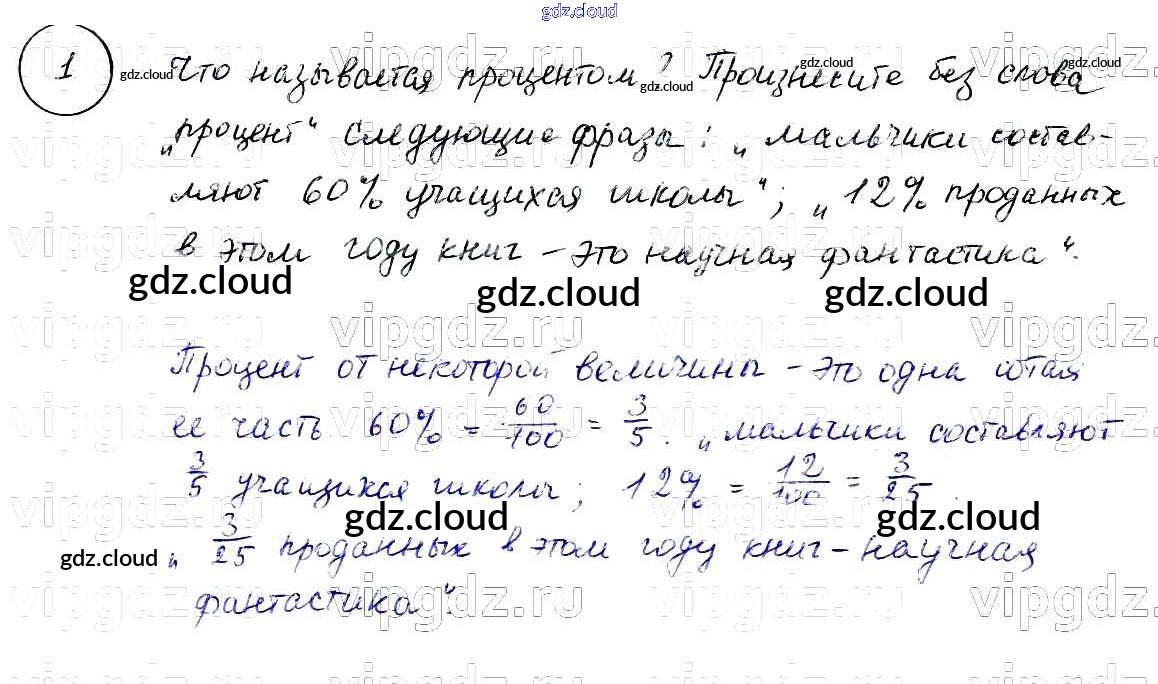 gdz.cloud
1 gdz.cloud Что называется процентом? Произнесите без слова
gdz.cloud gdz.cloud gdz.cloud
„процент“ следующие фразы: „мальчики состав-
ляют 60% учащихся школы“; „12% проданных
в этом году книг – это научная фантастика“.
gdz.cloud gdz.cloud gdz.cloud
vipgdz.ru vipgdz.ru vipgdz.ru
Процент от некоторой величины – это одна сотая
ее часть 60% = 60/100 = 3/5. „мальчики составляют
3/5 учащихся школы; 12% = 12/100 = 3/25.
gdz.cloud gdz.cloud
gdz.cloud „3/25 проданных в этом году книг – научная
фантастика“.
vipgdz.ru vipgdz.ru vipgdz.ru